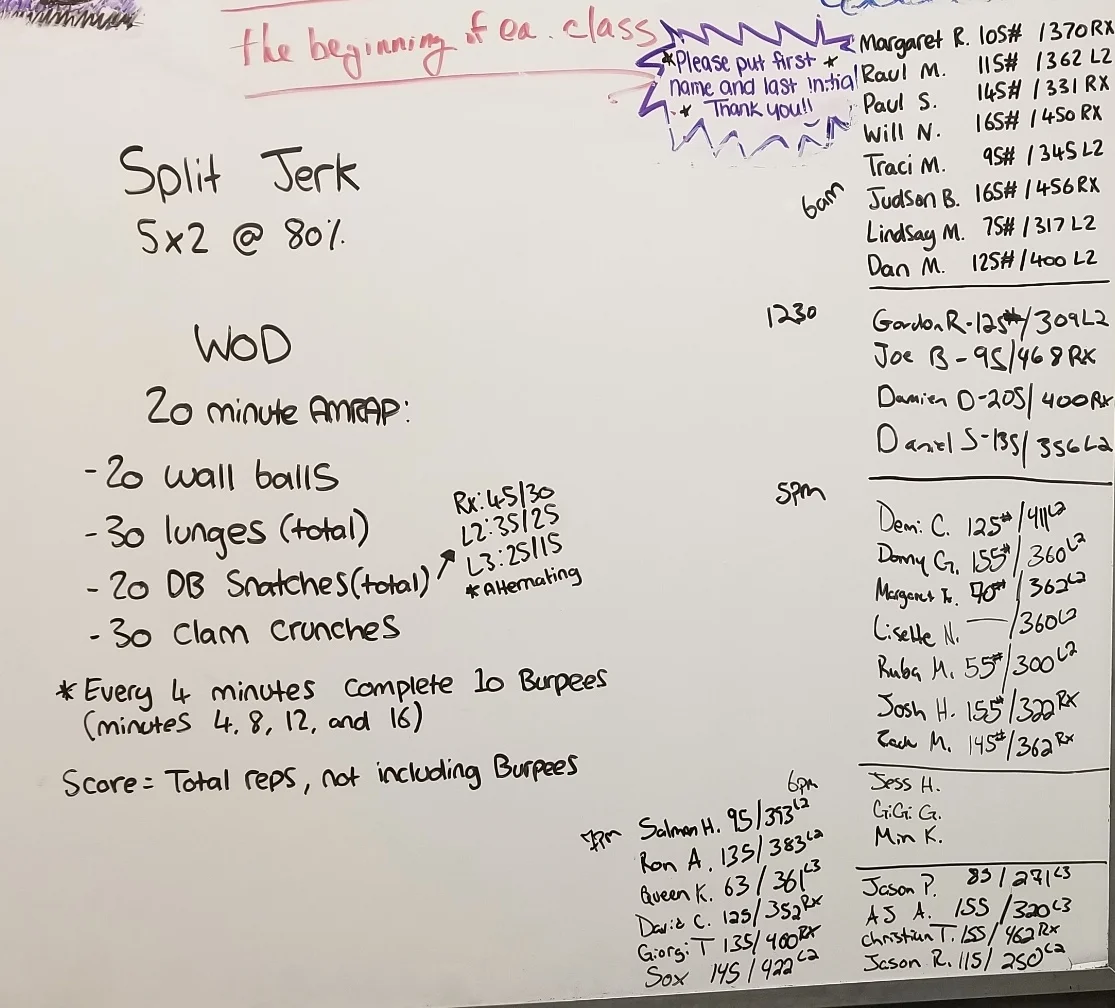 the beginning of ea. class
*Please put first *
name and last initial
* Thank you!!
Split Jerk
5x2 @ 80%
WOD
20 minute AMRAP:
- 20 wall balls
- 30 lunges (total)
- 20 DB Snatches (total)
Rx: 45/30
L2: 35/25
L3: 25/15
*Alternating
- 30 Clam Crunches
* Every 4 minutes complete 10 Burpees
(minutes 4, 8, 12, and 16)
Score = Total reps, not including Burpees
6am
Margaret R. 105# /370 RX
Raul M. 115# /362 L2
Paul S. 145# /331 RX
Will N. 165# /450 RX
Traci M. 95# /345 L2
Judson B. 165# /456 RX
Lindsay M. 75# /317 L2
Dan M. 125# /400 L2
1230
Gordon R - 125#/309 L2
Joe B - 95/468 Rx
Damien D - 205/400 Rx
Daniel S - 135/356 L2
5pm
Demi C. 125#/411 L2
Danny G. 155#/360 L2
Margaret 70#/362 L2
Lisette N. — /360 L2
Ruba M. 55#/300 L2
Josh H. 155#/322 RX
Zach M. 145#/362 Rx
6pm
Jess H.
GiGi G.
Min K.
Jason P. 85/271 L3
AJ A. 155/320 L3
Christian T. 155/462 Rx
Jason R. 115/250 L2
7pm
Salman H. 95/393 L2
Ron A. 135/383 L2
Queen K. 63/361 L3
David C. 125/352 RX
Giorgi T 135/400 RX
Sox 145/422 L2